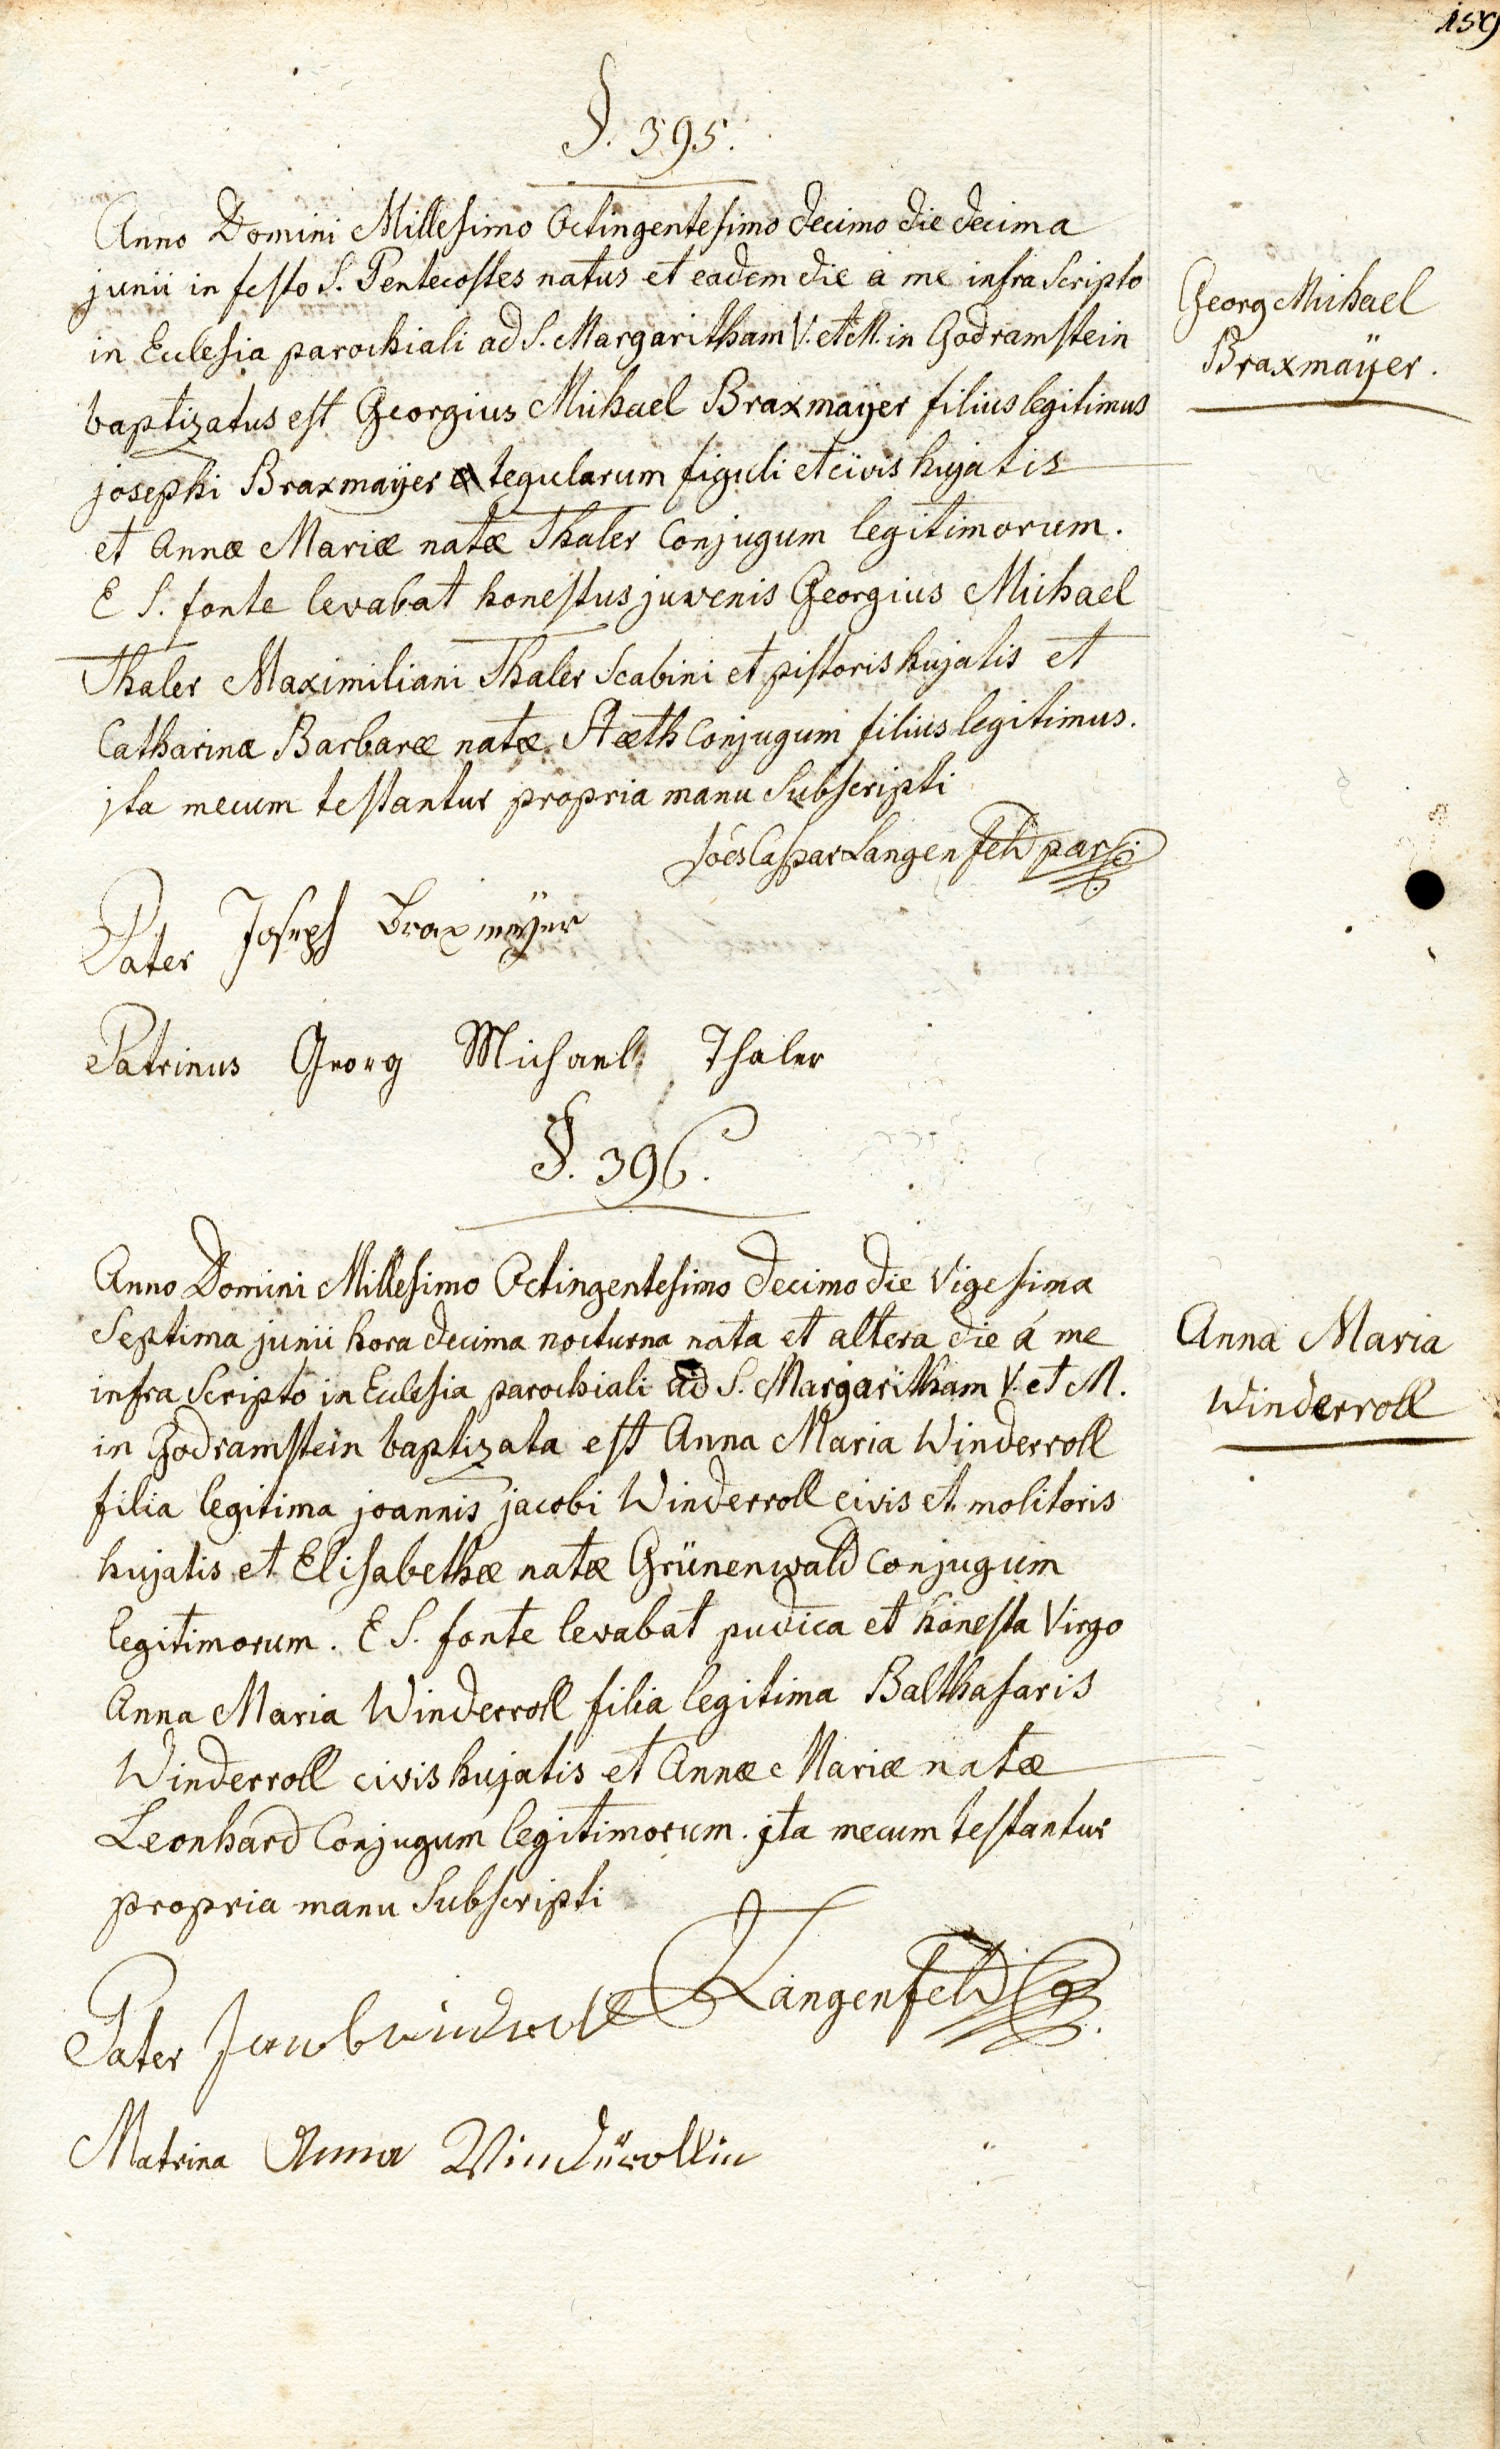 159
§. 395.
Anno Domini Millesimo Octingentesimo decimo die decima
junii in festo S. Pentecostes natus et eadem die á me infra Scripto
in Eclesia parochiali ad S. Margaritham V. et M. in Godramstein
baptizatus est Georgius Michael Braxmaÿer filius legitimus
josephi Braxmaÿer tegularum figuli et civis hujatis
et Annæ Mariæ natæ Thaler Conjugum legitimorum.
E S. fonte levabat honestus juvenis Georgius Michael
Thaler Maximiliani Thaler Scabini et pistoris hujatis et
Catharinæ Barbaræ natæ Stæth Conjugum filius legitimus.
jta mecum testantur propria manu Subscripti
Joes Caspar Langenfeld par
Georg Michael
Braxmaÿer.
Pater Joseph Braxmeÿer
Patrinus Georg Michael Thaler
§. 396.
Anno Domini Millesimo Octingentesimo decimo die Vigesima
Septima junii hora decima nocturna nata et altera die á me
infra Scripto in Eclesia parochiali ad S. Margaritham V. et M.
in Godramstein baptizata est Anna Maria Winderroll
filia legitima joannis jacobi Winderroll civis et molitoris
hujatis et Elisabethæ natæ Grünenwald Conjugum
legitimorum. E S. fonte levabat pudica et honesta Virgo
Anna Maria Winderroll filia legitima Balthasaris
Winderroll civis hujatis et Annæ Mariæ natæ
Leonhard Conjugum legitimorum. jta mecum testantur
propria manu Subscripti
Langenfeld
Anna Maria
Winderroll
Pater Jacob windroll
Matrina Anna Windürollin